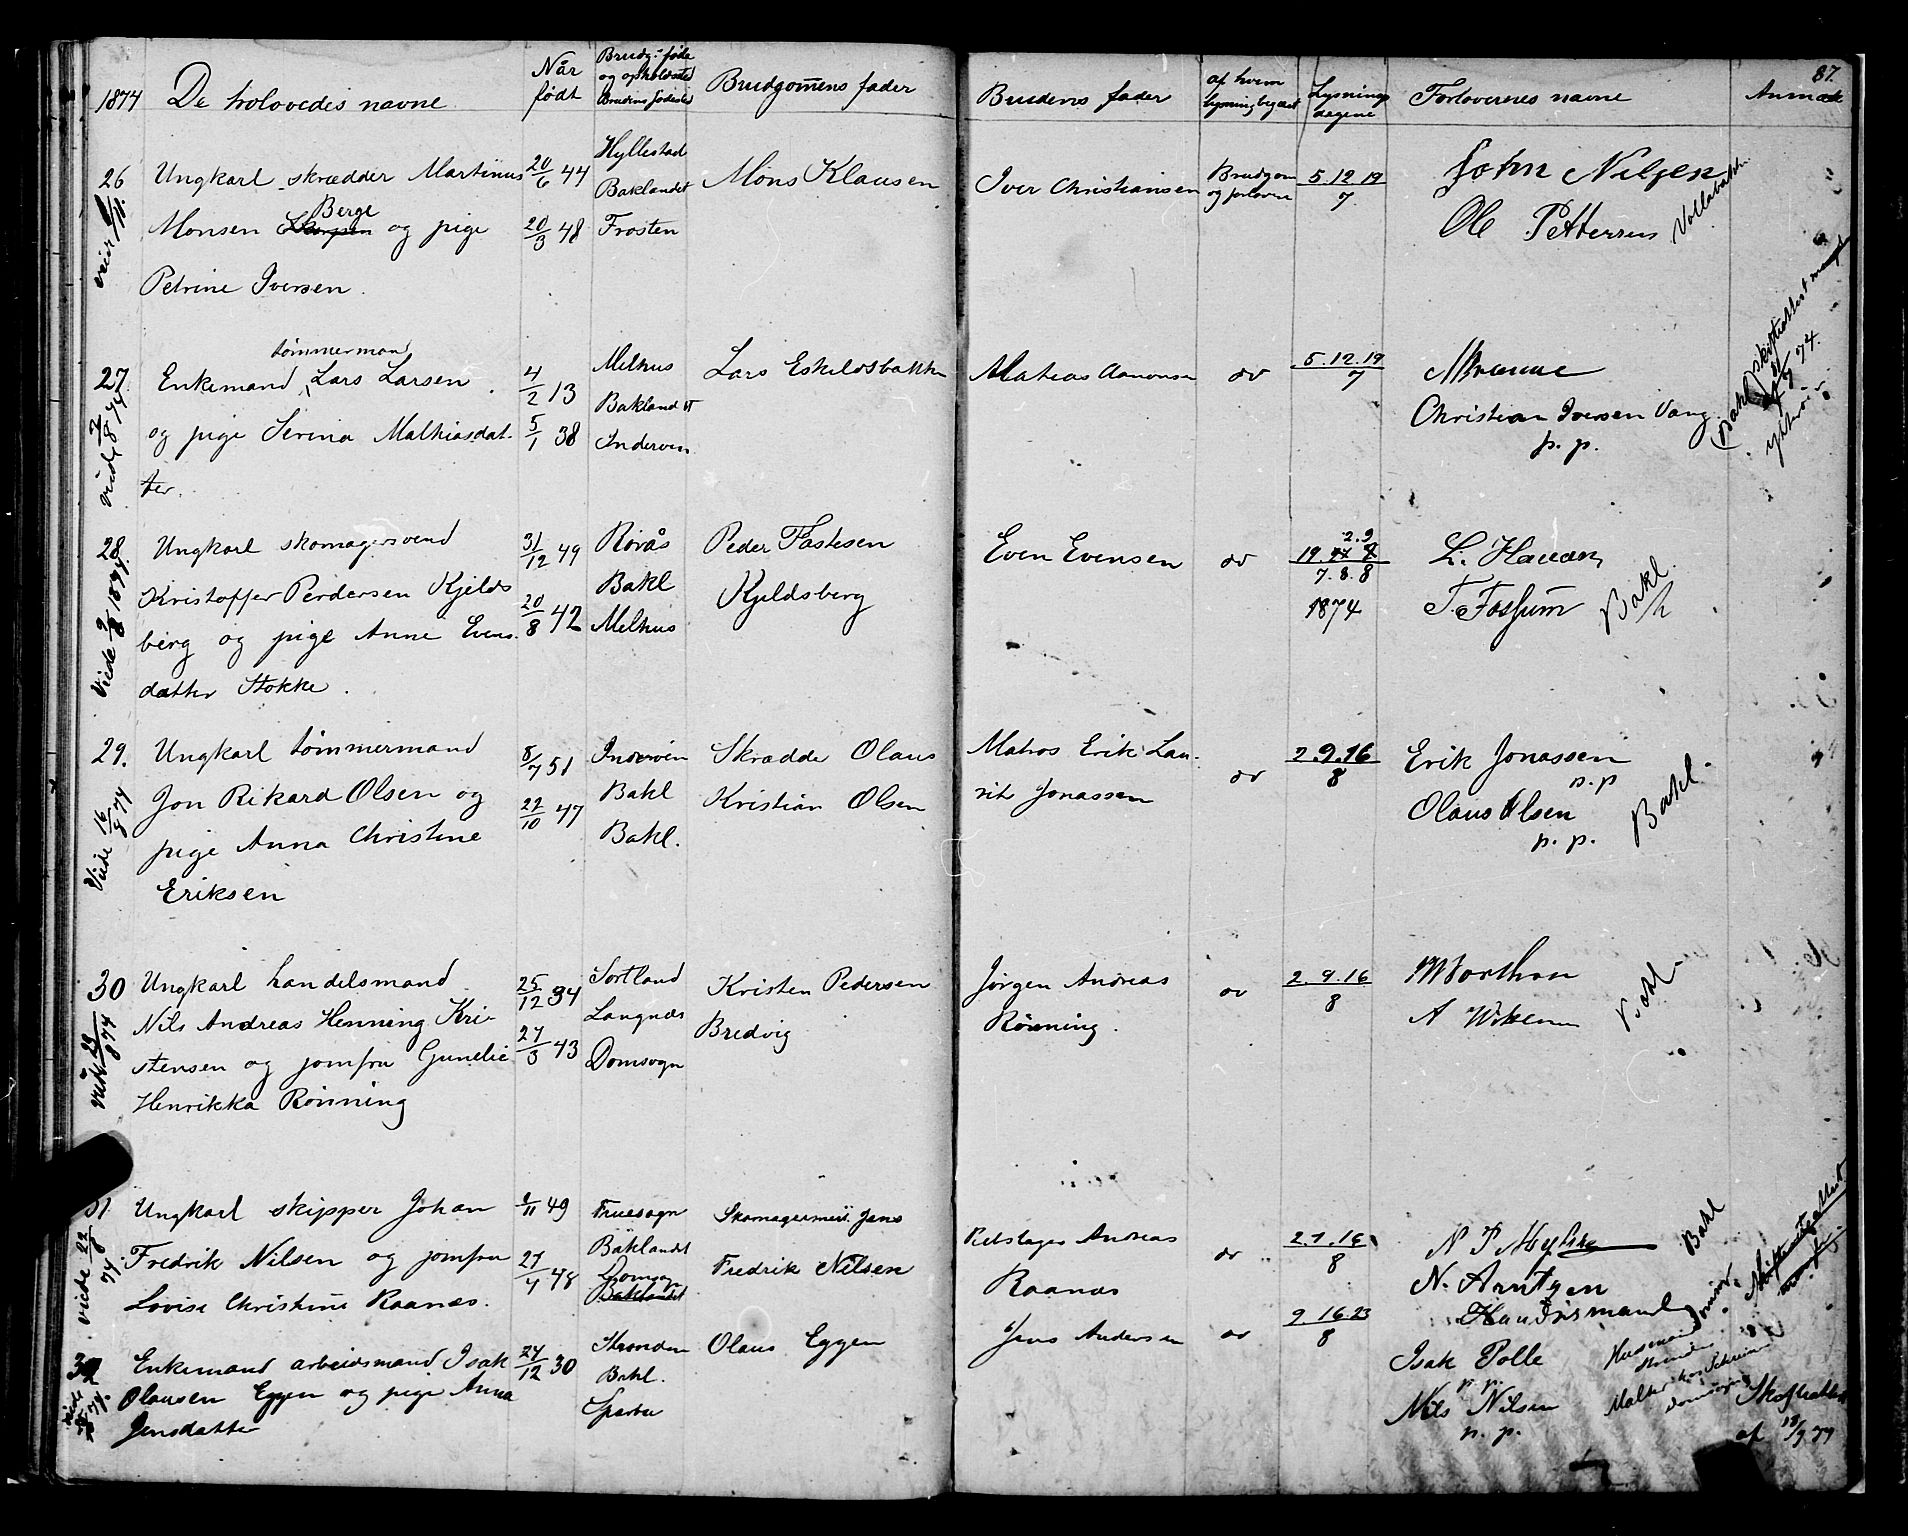 1874
De trolovedes navne
Når født
Brudg: føde og opholdssted Brudens fødested
Brudgomens fader
Brudens fader
af hvem lysning begært
Lysnings dagene
Forlovernes navne
Anmærk
87.
26
Ungkarl skrædder Martinus
Monsen Berge og pige
Petrine Iversen.
20/6 44
20/3 48
Hyllestad
Baklandet
Frosten
Mons Klausen
Iver Christiansen
Brudgom og forlover
5.12.19
7
John Nilsen
Ole Pettersen
Vollabakken
27.
viede 2/8 74
tømmermand
Enkemand Lars Larsen
og pige Serina Mathiasdat-
ter.
4/2 13
5/1 38
Melhus
Baklandet
Inderøen
Lars Eskeldsbakken
Mathias Aamonsen
do
5.12.19
7
Christian Iversen Vang
p. p.
Bakl
28
Viede 2/8 1874.
Ungkarl skomagersvend
Kristoffer Perdersen Kjelds
berg og pige Anne Evens
datter Stokke.
31/12 49
20/8 42
Rørås
Bakl
Melhus
Peder Fastesen
Kjeldsberg
Even Evensen
do
2.9
19.
7.8.8
1874
T. Fossum
Bakl.
29.
Viede 16/8 74
Ungkarl tømmermand
Jon Rikard Olsen og
pige Anna Christine
Eriksen
8/7 51
22/10 47
Inderøen
Bakl
Bakl.
Skrædder Olaus
Kristian Olsen
Matros Erik Lau-
rits Jonassen
do
2.9.16
8
Erik Jonassen
p.p
Olaus Olsen
p. p.
Bakl.
30
Ungkarl handelsmand
Nils Andreas Henning Kri-
stensen og jomfru Gunelie
Henrikka Rønning
25/12 34
27/3 43
Sortland
Langnæs
Domsogn
Kristen Pedersen
Bredvig
Jørgen Andreas
Rønning.
do
2.9.16
8
Bakl.
31
viede 22/8 74
Ungkarl skipper Johan
Fredrik Nilsen og jomfru
Lovise Christine Raanæs.
49
27/4 48
Fruesogn
Baklandet
Domsogn
Baklandet
Skomagermest. Jens
Fredrik Nilsen
Rebslager Andreas
Raanæs
do
8
N. Arntzen
Handelsmand
Bakl
Skifteattest
mangl.
32
Enkemand arbeidsmand Isak
Olausen Eggen og pige Anna
Jensdatter
27/12 30
Stranden
Bakl.
Sparbu
Olaus Eggen
Jens Andersen
do
9.16.23
8
Isak Polle
p. p.
Nils Nilsen
p. p.
Husmand
Skifteattest
af